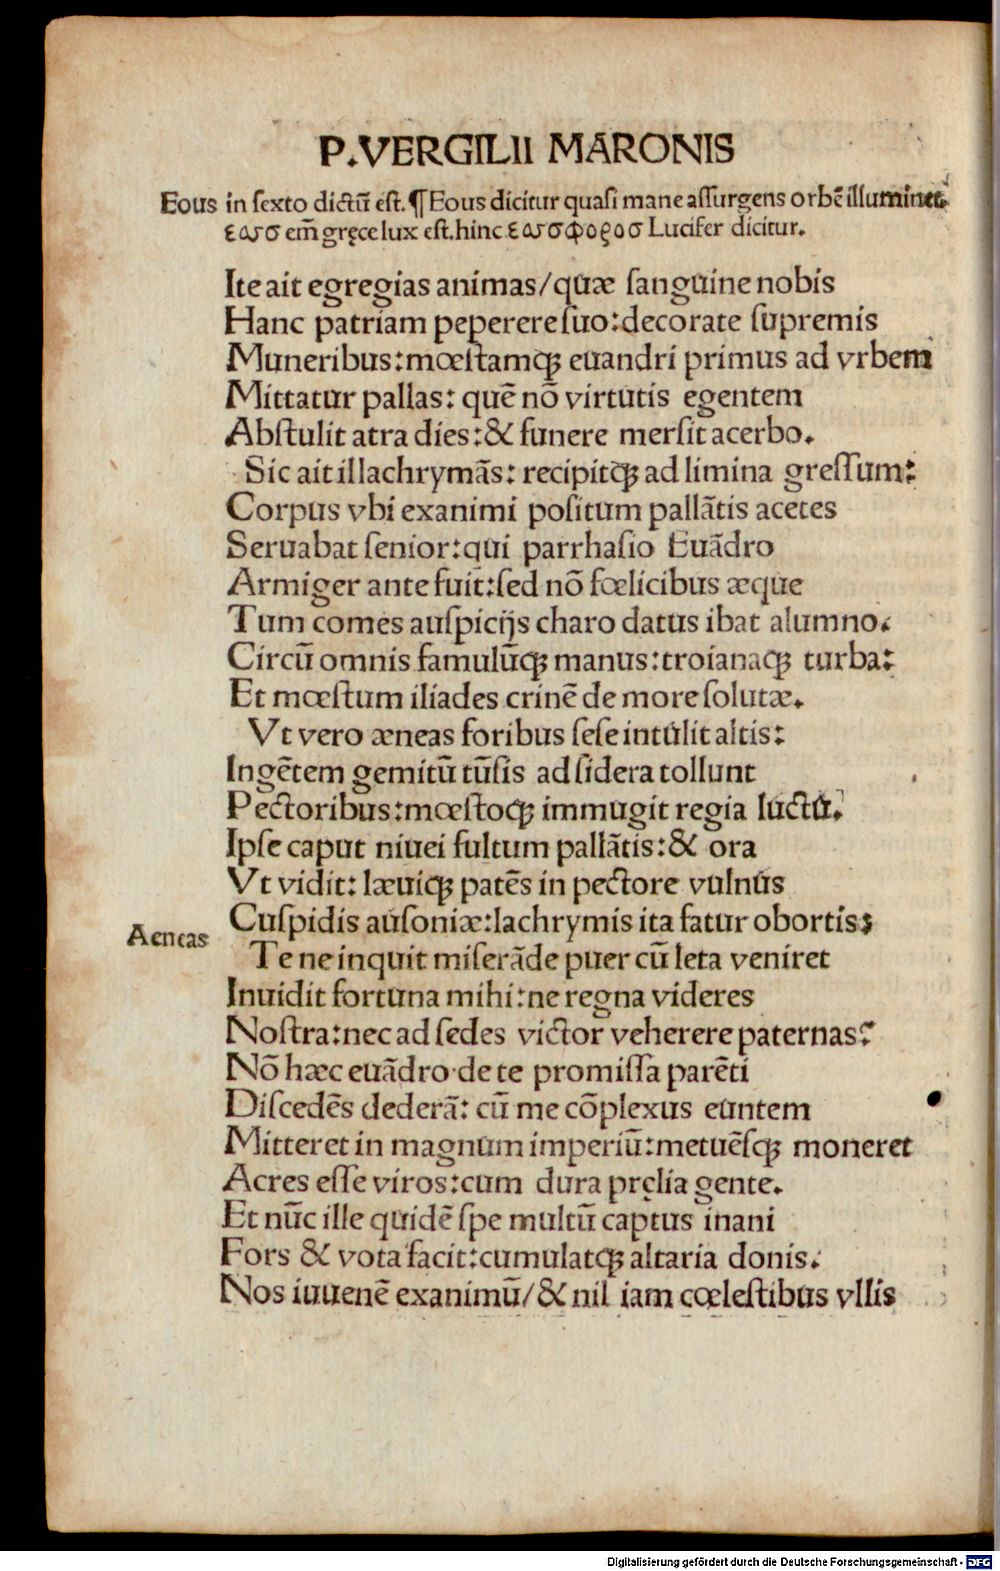 P.VERGILII MARONIS
Eous in ſexto dictū eſt.¶Eous dicitur quaſi mane aſſurgens orbē illuminet.
εωσ em̄ gręce lux eſt.hinc εωσφοροσ Lucifer dicitur.
Ite ait egregias animas/quæ ſanguine nobis
Hanc patriam peperere ſuo:decorate ſupremis
Muneribus:mœſtamqꝫ euandri primus ad vrbem
Mittatur pallas: quē nō virtutis egentem
Abſtulit atra dies:& funere merſit acerbo.
Sic ait illachrymās: recipitqꝫ ad limina greſſum:
Corpus vbi exanimi poſitum pallātis acetes
Seruabat ſenior:qui parrhaſio Euādro
Armiger ante fuit:ſed nō fœlicibus æque
Tum comes auſpicijs charo datus ibat alumno.
Circū omnis famulūqꝫ manus:troianaqꝫ turba:
Et mœſtum iliades crinē de more ſolutæ.
Vt vero æneas foribus ſeſe intulit altis:
Ingētem gemitū tūſis ad ſidera tollunt
Pectoribus:mœſtoqꝫ immugit regia luctū.
Ipſe caput niuei fultum pallātis:& ora
Vt vidit: læuiqꝫ patēs in pectore vulnus
Cuſpidis auſoniæ:lachrymis ita fatur obortis;
Aeneas
Te ne inquit miſerāde puer cū leta veniret
Inuidit fortuna mihi:ne regna videres
Noſtra:nec ad ſedes victor veherere paternas?
Nō hæc euādro de te promiſſa parēti
Diſcedēs dederā: cū me cōplexus euntem
Mitteret in magnum imperiū:metuēſqꝫ moneret
Acres eſſe viros:cum dura pręlia gente.
Et nūc ille quidē ſpe multū captus inani
Fors & vota facit:cumulatqꝫ altaria donis.
Nos iuuenē exanimū/& nil iam cœleſtibus vllis
Digitalisierung gefördert durch die Deutsche Forschungsgemeinschaft - DFG